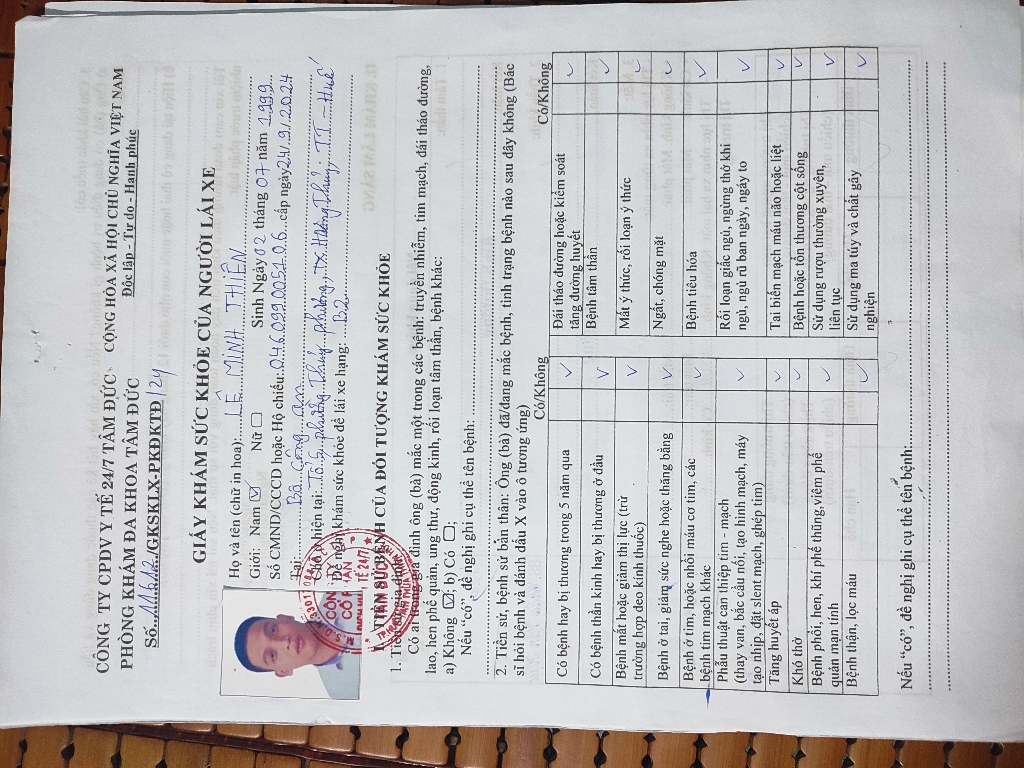 CÔNG TY CPDV Y TẾ 24/7 TÂM ĐỨC
PHÒNG KHÁM ĐA KHOA TÂM ĐỨC
Số 11612/GKSKLX-PKĐKTĐ/24
CỘNG HÒA XÃ HỘI CHỦ NGHĨA VIỆT NAM
Độc lập - Tự do - Hạnh phúc
GIẤY KHÁM SỨC KHỎE CỦA NGƯỜI LÁI XE
Họ và tên (chữ in hoa): LÊ MINH THIÊN
Giới: Nam ☑ Nữ ☐ Sinh Ngày 02 tháng 07 năm 1999
Số CMND/CCCD hoặc Hộ chiếu: 046.099.0052.06. cấp ngày 24/9/2024
Tại Bộ công an
Chỗ ở hiện tại: Tổ 5, phường Thủy phương, TX. Hương Thủy. TT - Huế
Đề nghị khám sức khỏe để lái xe hạng: B2
TIỀN SỬ BỆNH CỦA ĐỐI TƯỢNG KHÁM SỨC KHỎE
1. Tiền sử gia đình:
Có ai trong gia đình ông (bà) mắc một trong các bệnh: truyền nhiễm, tim mạch, đái tháo đường,
lao, hen phế quản, ung thư, động kinh, rối loạn tâm thần, bệnh khác:
a) Không ☑; b) Có ☐;
Nếu “có”, đề nghị ghi cụ thể tên bệnh:
2. Tiền sử, bệnh sử bản thân: Ông (bà) đã/đang mắc bệnh, tình trạng bệnh nào sau đây không (Bác
sĩ hỏi bệnh và đánh dấu X vào ô tương ứng)
Có/Không
Có bệnh hay bị thương trong 5 năm qua ✓
Có bệnh thần kinh hay bị thương ở đầu ✓
Bệnh mắt hoặc giảm thị lực (trừ
trường hợp đeo kính thuốc) ✓
Bệnh ở tai, giảm sức nghe hoặc thăng bằng ✓
Bệnh ở tim, hoặc nhồi máu cơ tim, các
bệnh tim mạch khác ✓
Phẫu thuật can thiệp tim - mạch
(thay van, bắc cầu nối, tạo hình mạch, máy
tạo nhịp, đặt slent mạch, ghép tim) ✓
Tăng huyết áp ✓
Khó thở ✓
Bệnh phổi, hen, khí phế thũng, viêm phế
quản mạn tính ✓
Bệnh thận, lọc máu ✓
Có/Không
Đái tháo đường hoặc kiểm soát
tăng đường huyết ✓
Bệnh tâm thần ✓
Mất ý thức, rối loạn ý thức ✓
Ngất, chóng mặt ✓
Bệnh tiêu hóa ✓
Rối loạn giấc ngủ, ngừng thở khi
ngủ, ngủ rũ ban ngày, ngáy to ✓
Tai biến mạch máu não hoặc liệt ✓
Bệnh hoặc tổn thương cột sống ✓
Sử dụng rượu thường xuyên,
liên tục ✓
Sử dụng ma túy và chất gây
nghiện ✓
Nếu “có”, đề nghị ghi cụ thể tên bệnh: